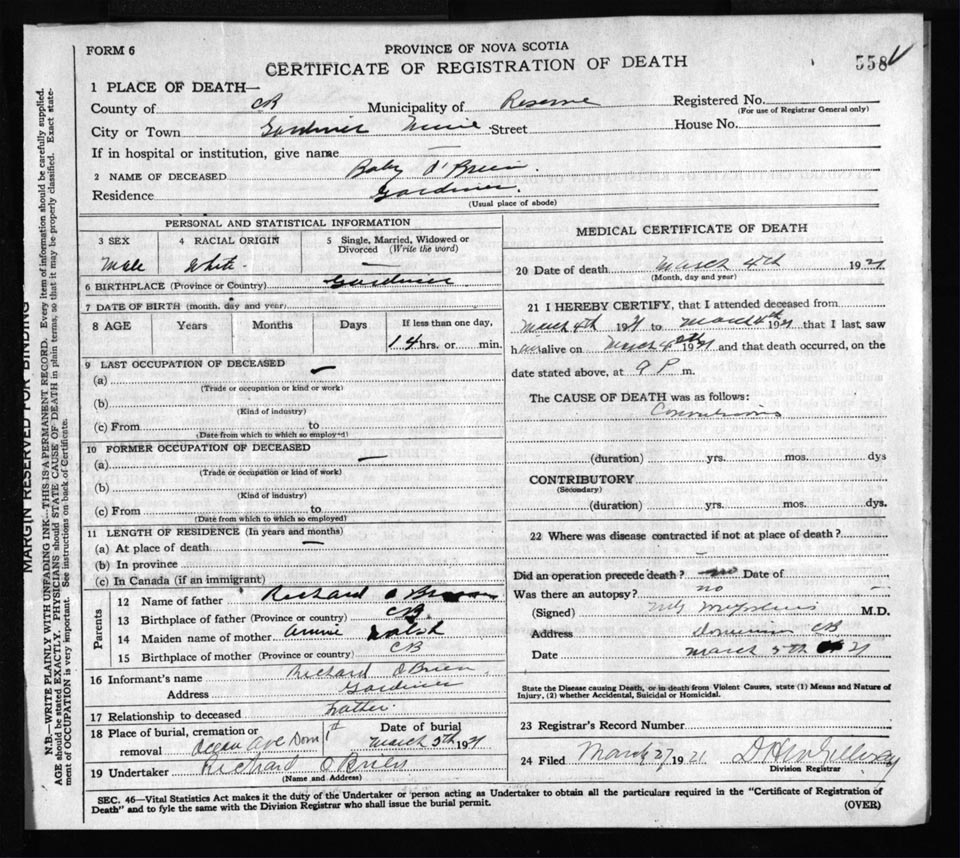 FORM 6
PROVINCE OF NOVA SCOTIA
CERTIFICATE OF REGISTRATION OF DEATH
558
1 PLACE OF DEATH—
County of CB Municipality of Reserve Registered No.
(For use of Registrar General only)
City or Town Gardiner Mine Street House No.
If in hospital or institution, give name —
2 NAME OF DECEASED Baby O'Brien
Residence Gardiner.
(Usual place of abode)
PERSONAL AND STATISTICAL INFORMATION
3 SEX 4 RACIAL ORIGIN 5 Single, Married, Widowed or Divorced (Write the word)
Male White —
6 BIRTHPLACE (Province or Country) Gardiner
7 DATE OF BIRTH (month, day and year)
8 AGE Years Months Days If less than one day,
14 hrs. or min.
9 LAST OCCUPATION OF DECEASED
(a)
(Trade or occupation or kind or work)
(b)
(Kind of industry)
(c) From to
(Date from which to which so employed)
10 FORMER OCCUPATION OF DECEASED
(a)
(Trade or occupation or kind of work)
(b)
(Kind of industry)
(c) From to
(Date from which to which so employed)
11 LENGTH OF RESIDENCE (In years and months)
(a) At place of death
(b) In province
(c) In Canada (if an immigrant)
Parents
12 Name of father Richard O Brien
13 Birthplace of father (Province or country) CB.
14 Maiden name of mother Annie Walsh
15 Birthplace of mother (Province or country) CB
16 Informant's name Richard O'Brien
Address Gardiner
17 Relationship to deceased Father.
18 Place of burial, cremation or removal Ocean Ave Dom Date of burial
March 5th 1921
19 Undertaker Richard O'Brien
(Name and Address)
MEDICAL CERTIFICATE OF DEATH
20 Date of death March 4th 1921
(Month, day and year)
21 I HEREBY CERTIFY, that I attended deceased from
March 4th 1921 to March 4th 1921 that I last saw
him alive on March 4th 1921 and that death occurred, on the
date stated above, at 9 P m.
The CAUSE OF DEATH was as follows:
Convulsions
(duration) yrs. mos. dys
CONTRIBUTORY
(Secondary)
(duration) yrs. mos. dys.
22 Where was disease contracted if not at place of death?
Did an operation precede death? no Date of
Was there an autopsy? no
(Signed) M.D.
Address Dominion CB
Date March 5th 21
State the Disease causing Death, or in death from Violent Causes, state (1) Means and Nature of
Injury, (2) whether Accidental, Suicidal or Homicidal.
23 Registrar's Record Number
24 Filed March 27 1921
Division Registrar
SEC. 46—Vital Statistics Act makes it the duty of the Undertaker or person acting as Undertaker to obtain all the particulars required in the "Certificate of Registration of
Death" and to fyle the same with the Division Registrar who shall issue the burial permit.
(OVER)
MARGIN RESERVED FOR BINDING
N.B.—WRITE PLAINLY WITH UNFADING INK—THIS IS A PERMANENT RECORD. Every item of information should be carefully supplied.
AGE should be stated EXACTLY. PHYSICIANS should STATE CAUSE OF DEATH in plain terms, so that it may be properly classified. Exact state-
ment of OCCUPATION is very important. See instructions on back of Certificate.